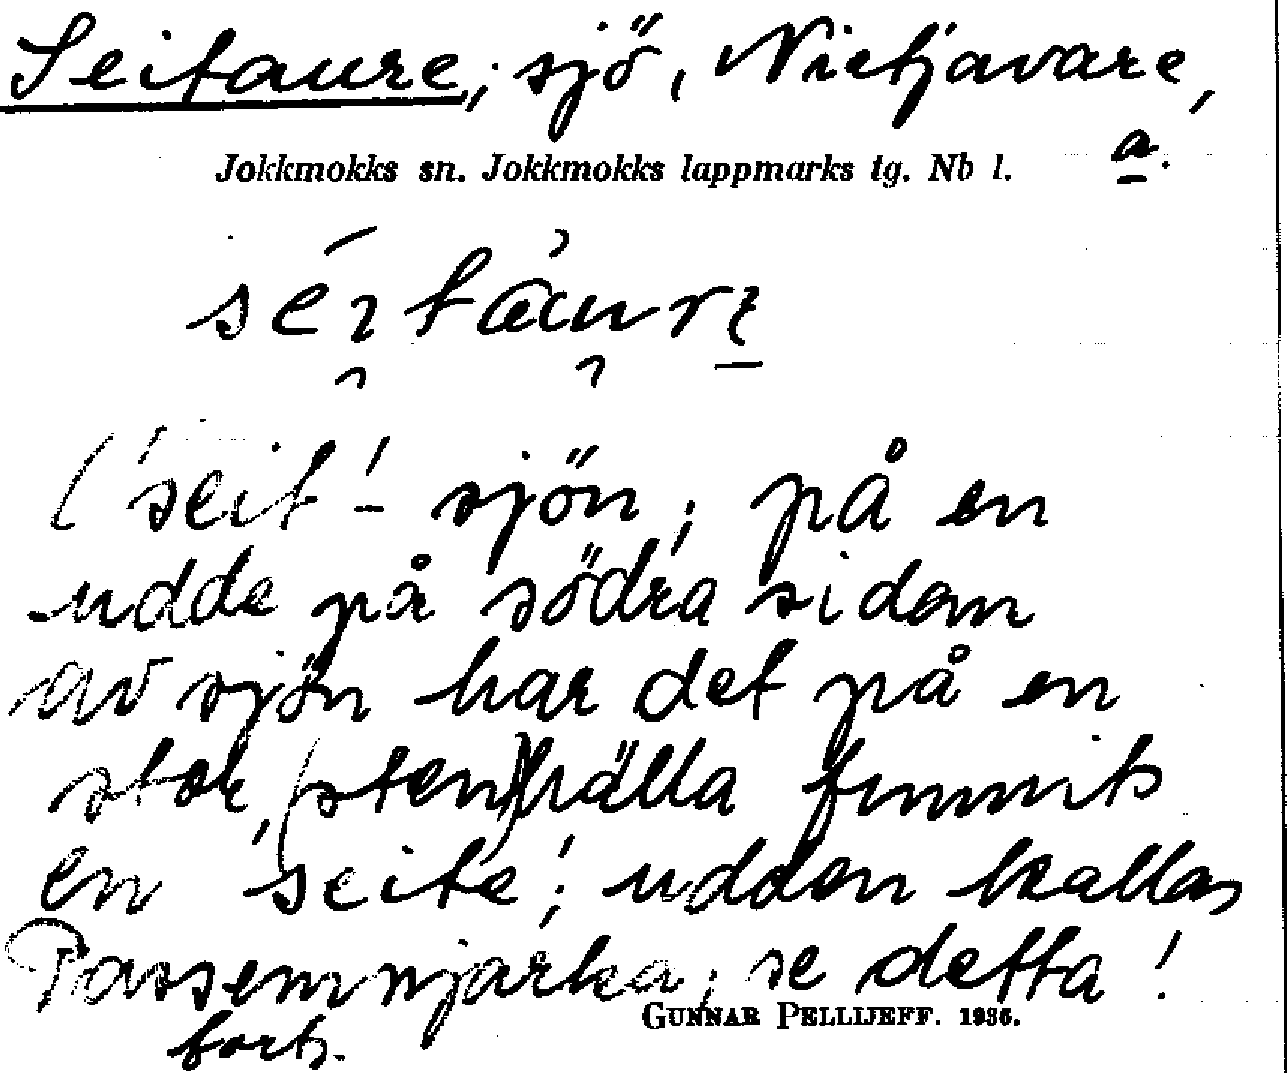 Seitaure, sjö, Nietjavare,
a.
Jokkmokks sn. Jokkmokks lappmarks tg. Nb l.
('seit'-sjön; på en
udde på södra sidan
av sjön har det på en
stor, (sten)hälla funnits
en 'seite'; udden kallas
Passemnjarka; se detta!
forts.
GUNNAR PELLIJEFF. 1936.